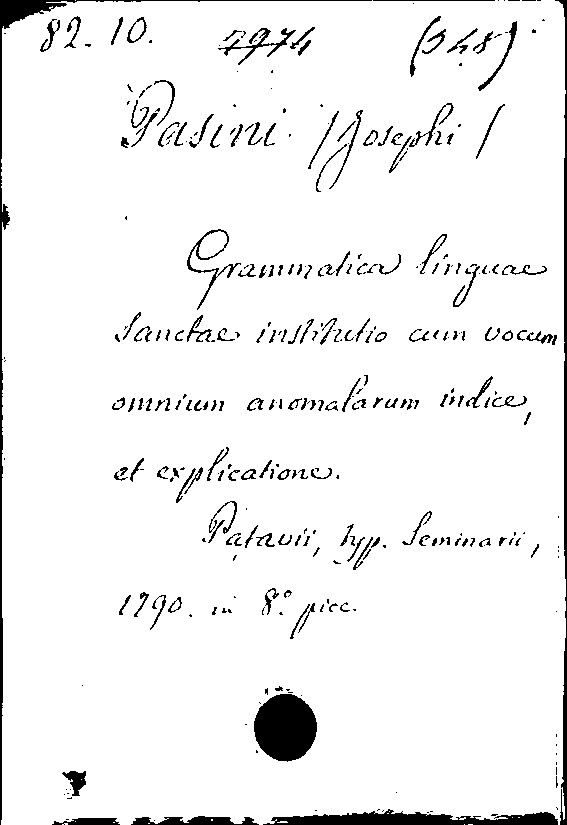 82. 10. 7974 (348)
Pasini (Josephi)
Grammatica linguae
Sanctae institutio cum vocum
omnium anomalarum indice,
et explicatione.
Patavii, typ. Seminarii,
1790. in 8.° picc.